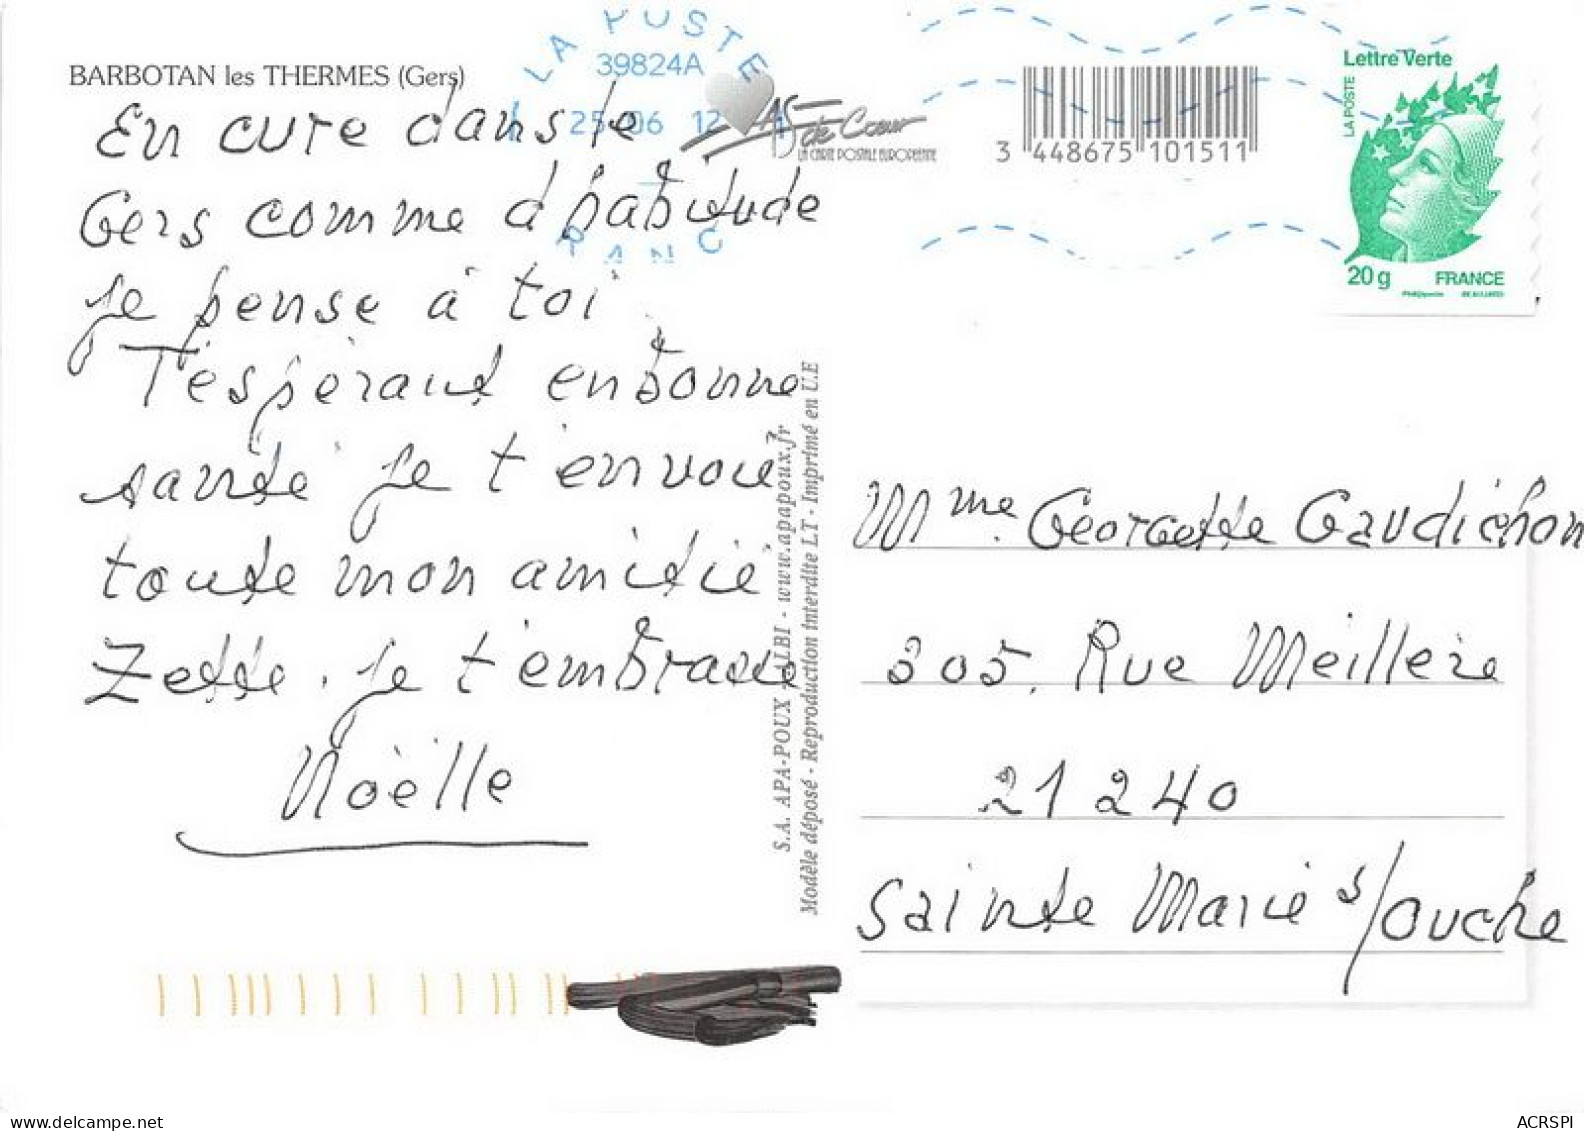 BARBOTAN les THERMES (Gers)
En cure dans le
Gers comme d habitude
je pense à toi
T'espérant en bonne
santé je t'envoie
toute mon amitié
Zette. je t'embrasse
Noëlle
LA POSTE
39824A
25 06 12
FRANC
AS de Cœur
LA CARTE POSTALE EUROPEENNE
3 448675 101511
Lettre Verte
LA POSTE
20 g FRANCE
S.A. APA-POUX - ALBI - www.apapoux.fr
Modèle déposé - Reproduction interdite LT - Imprimé en U.E
Mme. Georgette Gaudichon
305. Rue Meillère
21240
Sainte Marie s/ouche
delcampe.net
ACRSPI